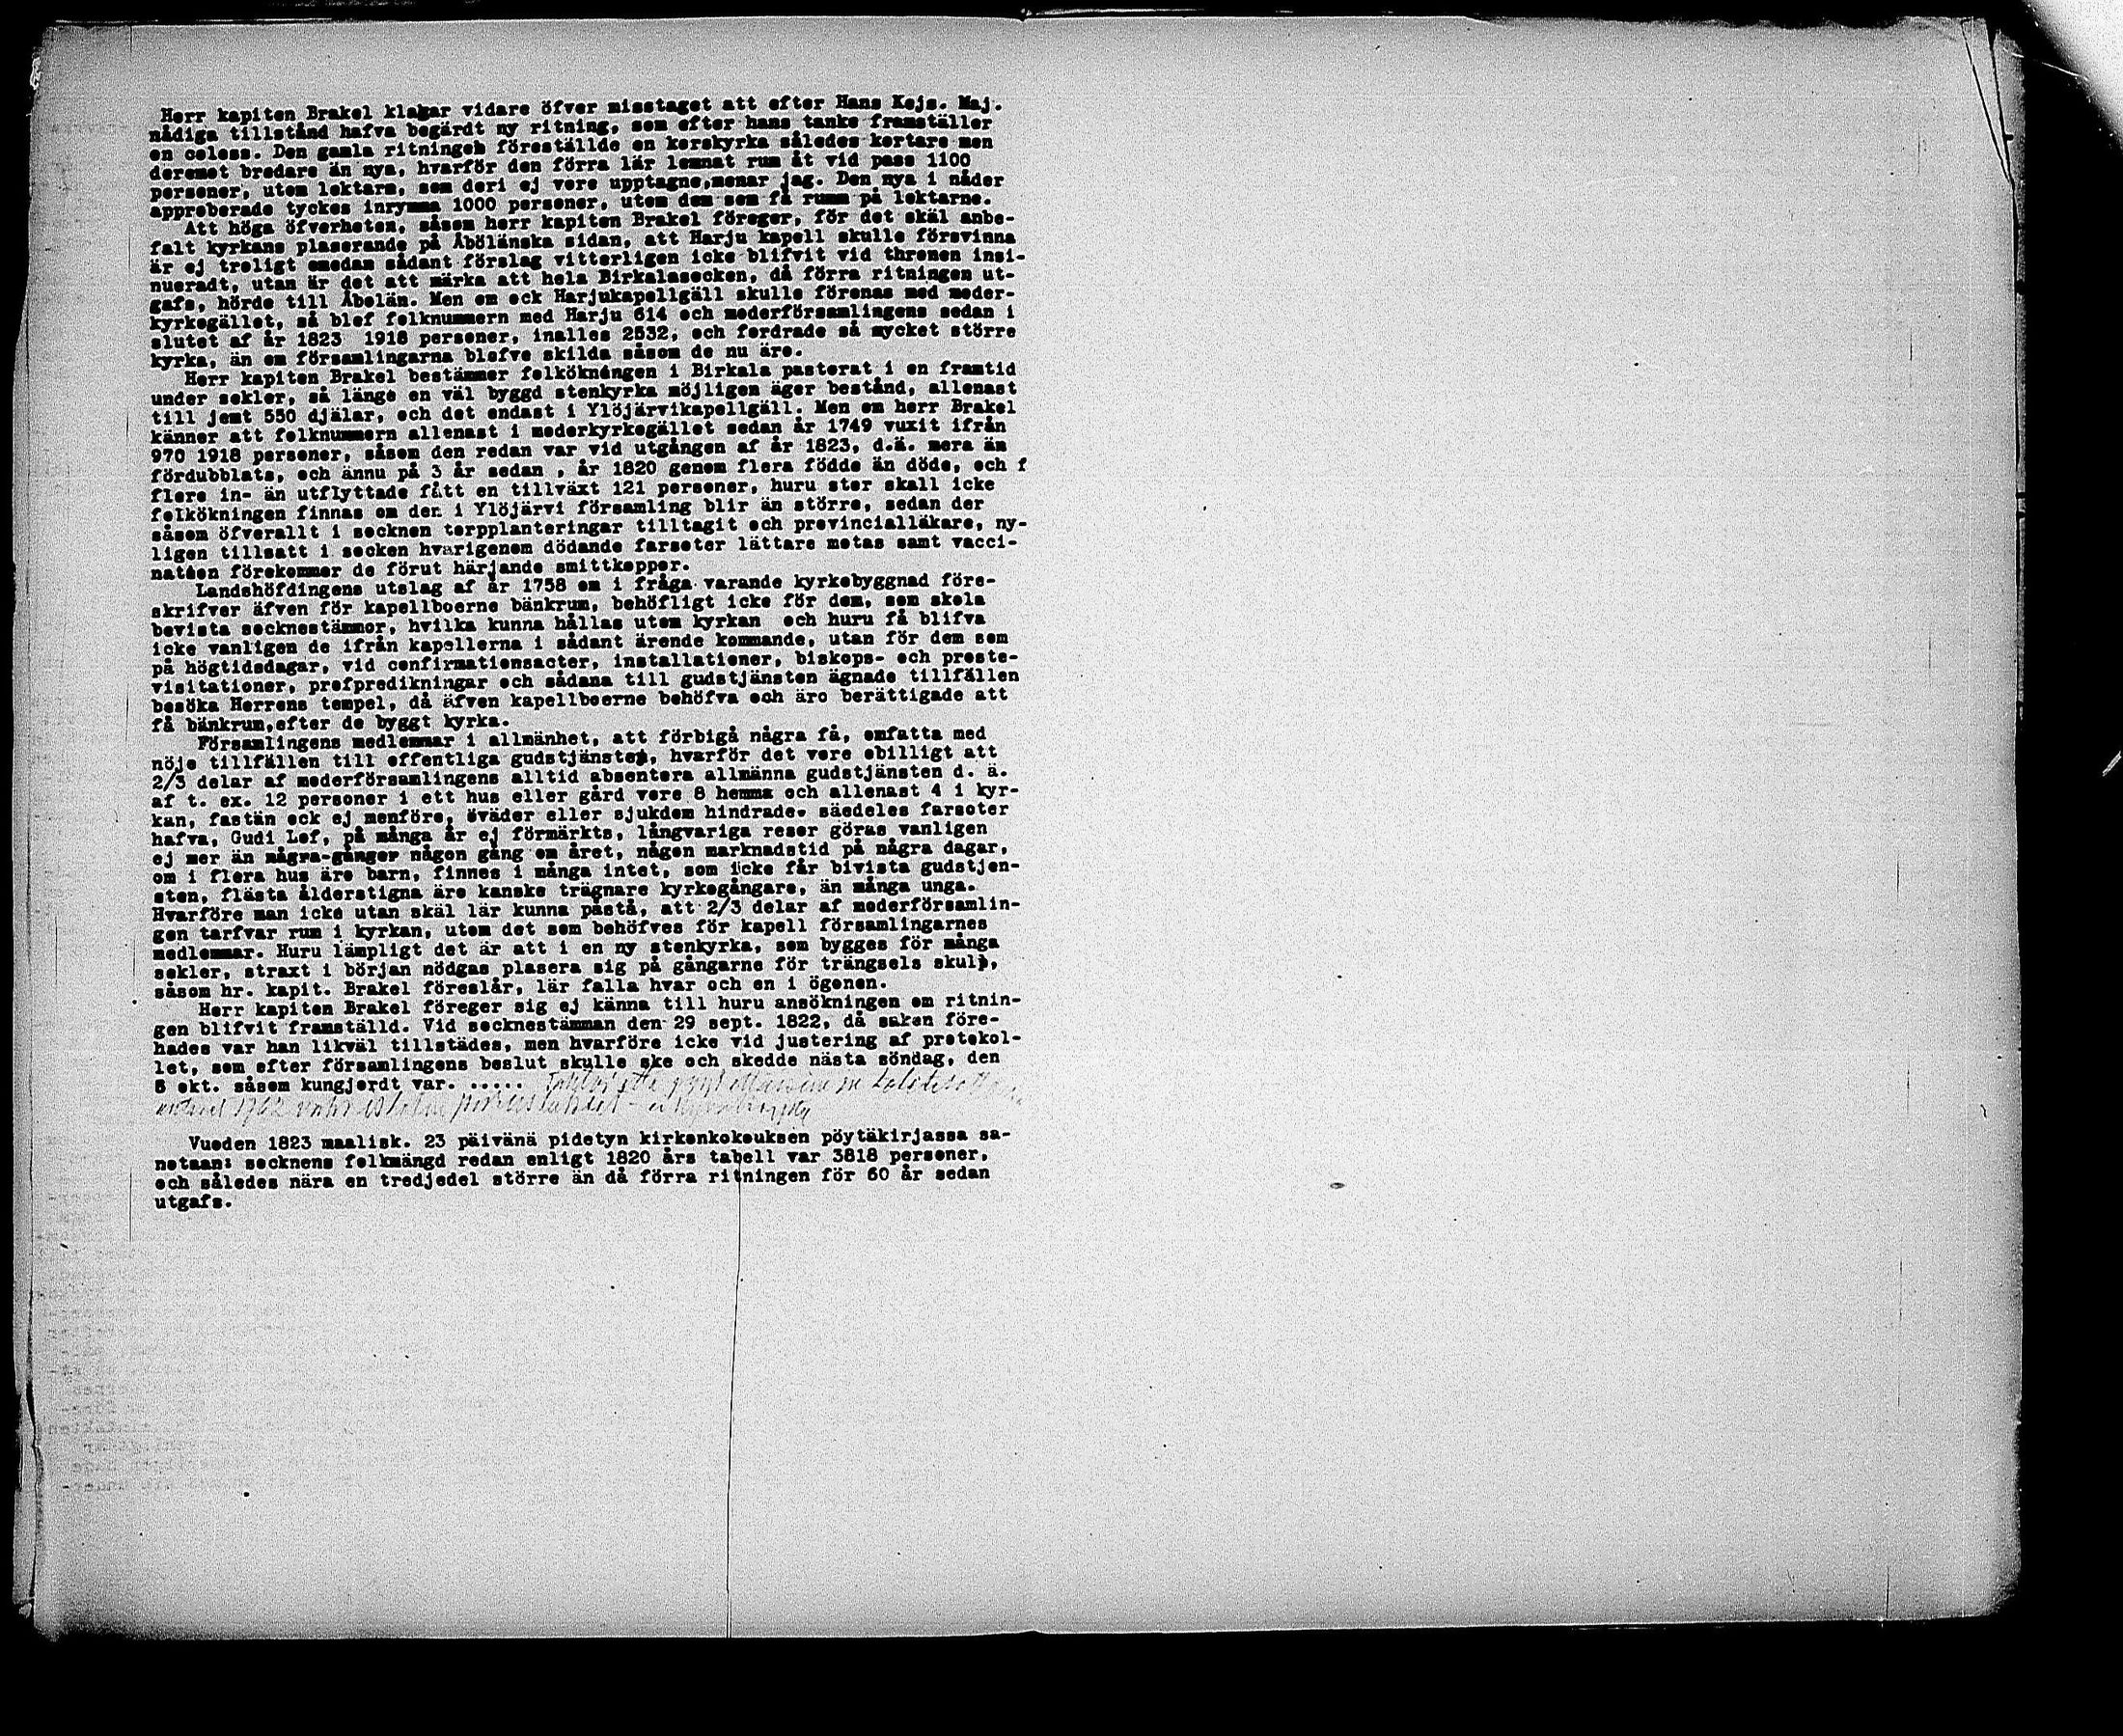 Herr kapiten Brakel klagar vidare öfver misstaget att efter Hans Kejs. Maj.
nådiga tillstånd hafva begärdt ny ritning, som efter hans tanke framställer
en coloss. Den gamla ritningen föreställde en korskyrka således kortare men
deremot bredare än nya, hvarför den förra lär lemnat rum åt vid pass 1100
personer, utom loktarn, som deri ej voro upptagne,menar jag. Den nya i nåder
approberade tyckes inrymma 1000 personer, utom dem som få rumm på loktarne.
Att höga öfverheten, såsom herr kapiten Brakel föreger, för det skäl anbe-
falt kyrkans plaserande på Åbolänska sidan, att Harju kapell skulle försvinna
är ej troligt emedan sådant förslag vitterligen icke blifvit vid thronen insi-
nueradt, utan är det att märka att hela Birkalasocken, då förra ritningen ut-
gafs, hörde till Åbolän. Men om ock Harjukapellgäll skulle förenas med moder-
kyrkogället, så blef folknummern med Harju 614 och moderförsamlingens sedan i
slutet af år 1823 1918 personer, inalles 2532, och fordrade så mycket större
kyrka, än om församlingarna blefve skilda såsom de nu äro.
Herr kapiten Brakel bestämmer folkökningen i Birkala pastorat i en framtid
under sekler, så länge en väl byggd stenkyrka möjligen äger bestånd, allenast
till jemt 550 djälar, och det endast i Ylöjärvikapellgäll. Men om herr Brakel
känner att folknummern allenast i moderkyrkogället sedan år 1749 vuxit ifrån
970 1918 personer, såsom den redan var vid utgången af år 1823, d.ä. mera än
fördubblats, och ännu på 3 år sedan , år 1820 genom flera födde än döde, och f
flere in- än utflyttade fått en tillväxt 121 personer, huru stor skall icke
folkökningen finnas om den i Ylöjärvi församling blir än större, sedan der
såsom öfverallt i socknen torpplanteringar tilltagit och provincialläkare, ny-
ligen tillsatt i socken hvarigenom dödande farsoter lättare motas samt vacci-
nation förekommer de förut härjande smittkoppor.
Landshöfdingens utslag af år 1758 om i fråga varande kyrkobyggnad före-
skrifver äfven för kapellboerne bänkrum, behöfligt icke för dem, som skola
bevista socknestämmor, hvilka kunna hållas utom kyrkan och huru få blifva
icke vanligen de ifrån kapellerna i sådant ärende kommande, utan för dem som
på högtidsdagar, vid confirmationsacter, installationer, biskops- och proste-
visitationer, profpredikningar och sådana till gudstjänsten ägnade tillfällen
besöka Herrens tempel, då äfven kapellboerne behöfva och äro berättigade att
få bänkrum,efter de byggt kyrka.
Församlingens medlemmar i allmänhet, att förbigå några få, omfatta med
nöje tillfällen till offentliga gudstjänster, hvarför det vore obilligt att
2/3 delar af moderförsamlingens alltid absentera allmänna gudstjänsten d. ä.
af t. ex. 12 personer i ett hus eller gård vore 8 hemma och allenast 4 i kyr-
kan, fastän ock ej menföre, oväder eller sjukdom hindrade. säedeles farsoter
hafva, Gudi Lof, på många år ej förmärkts, långvariga resor göras vanligen
ej mer än några-gånger någon gång om året, någon marknadstid på några dagar,
om i flera hus äro barn, finnes i många intet, som icke får bivista gudstjen-
sten, flästa ålderstigna äro kanske trägnare kyrkogångare, än många unga.
Hvarföre man icke utan skäl lär kunna påstå, att 2/3 delar af moderförsamlin-
gen tarfvar rum i kyrkan, utom det som behöfves för kapell församlingarnes
medlemmar. Huru lämpligt det är att i en ny stenkyrka, som bygges för många
sekler, straxt i början nödgas plasera sig på gångarne för trängsels skull,
såsom hr. kapit. Brakel föreslår, lär falla hvar och en i ögonen.
Herr kapiten Brakel föreger sig ej känna till huru ansökningen om ritnin-
gen blifvit framställd. Vid socknestämman den 29 sept. 1822, då saken före-
hades var han likväl tillstädes, men hvarföre icke vid justering af protokol-
let, som efter församlingens beslut skulle ske och skedde nästa söndag, den
6 okt. såsom kungjordt var. .....
1762
Vuoden 1823 maalisk. 23 päivänä pidetyn kirkonkokouksen pöytäkirjassa sa-
notaan: socknens folkmängd redan enligt 1820 års tabell var 3818 personer,
och således nära en tredjedel större än då förra ritningen för 60 år sedan
utgafs.